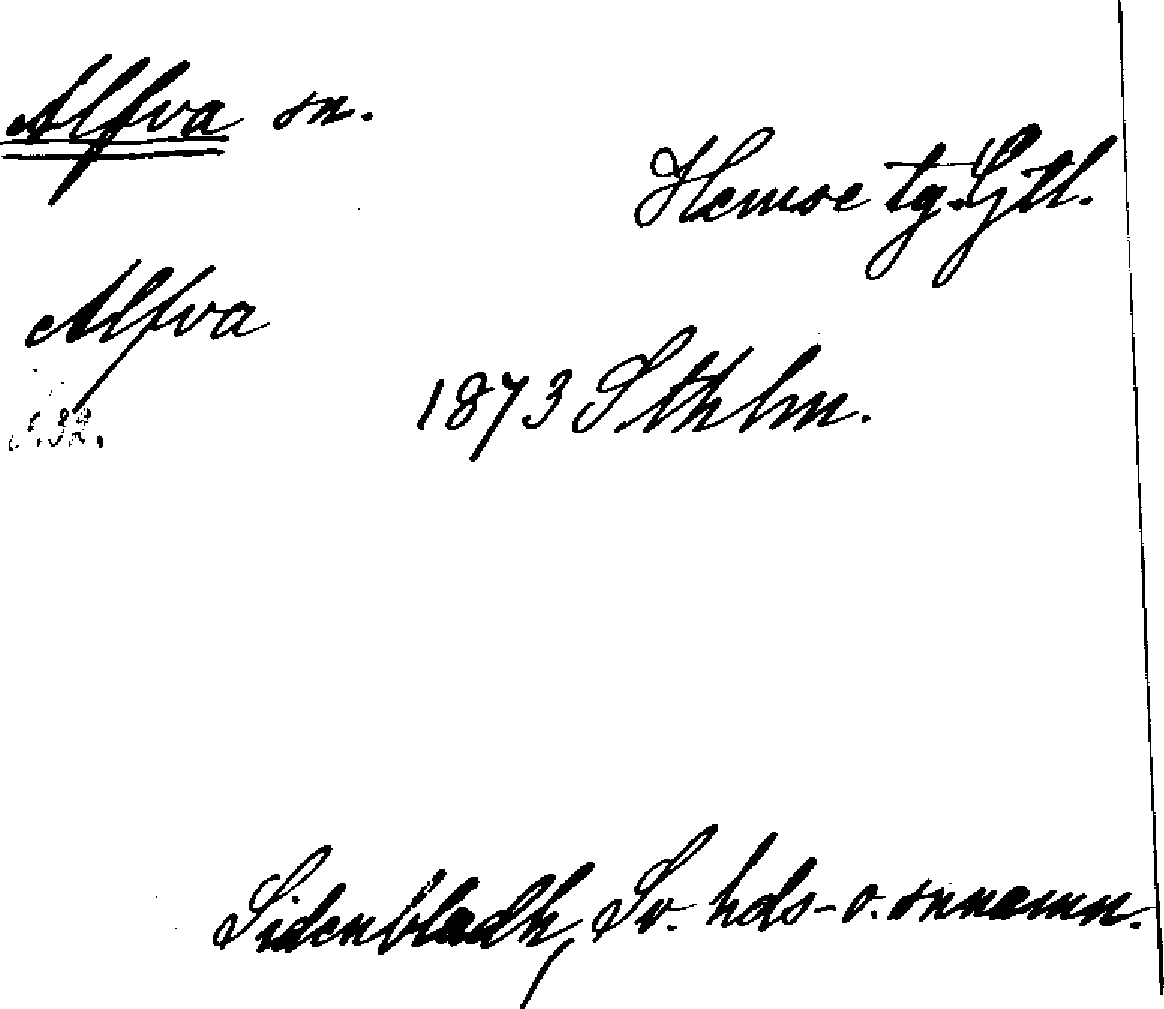 Alfva sn.
Hemse tg. Gtl.
Alfva
1873 Sthlm.
s. 32.
Sidenbladh, Sv. hds- o. snnamn.